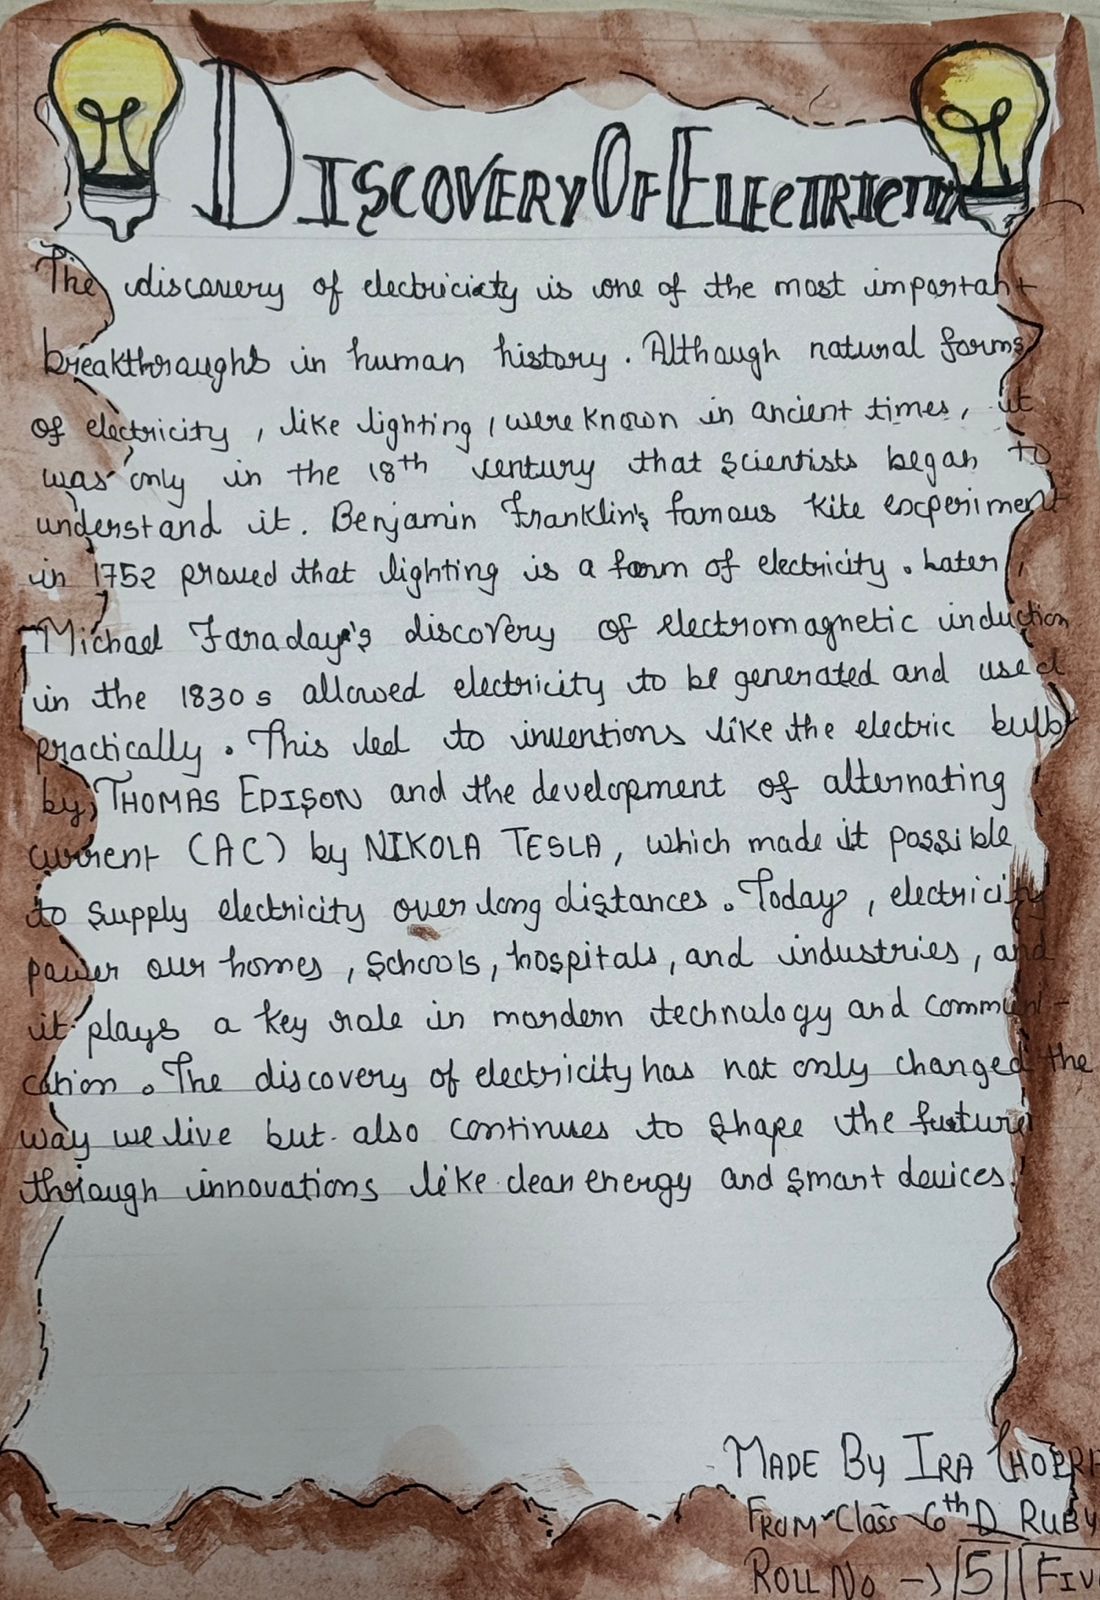 DISCOVERY OF ELECTRICITY
The discovery of electricicty is one of the most important
breakthroughs in human history. Although natural forms
of electricity, like lighting, were known in ancient times, it
was only in the 18th century that scientists began to
understand it. Benjamin Franklin's famous kite experiment
in 1752 proved that lighting is a form of electricity. Later,
Michael Faraday's discovery of electromagnetic induction
in the 1830s allowed electricity to be generated and used
practically. This led to inventions like the electric bulb
by THOMAS EDISON and the development of alternating
current (AC) by NIKOLA TESLA, which made it possible
to supply electricity over long distances. Today, electricity
power our homes, schools, hospitals, and industries, and
it plays a key role in mordern technology and communi-
cation. The discovery of electricity has not only changed the
way we live but also continues to shape the future
through innovations like clean energy and smart devices.
MADE BY IRA
FROM Class 6th D RUBY
ROLL NO → 5 FIVE